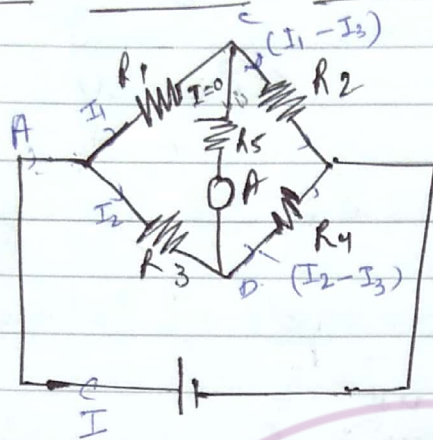 C
(I₁-I₃)
R1
R2
I=0
I₁
A
R5
A
I₂
R3
R4
D
(I₂-I₃)
C
I